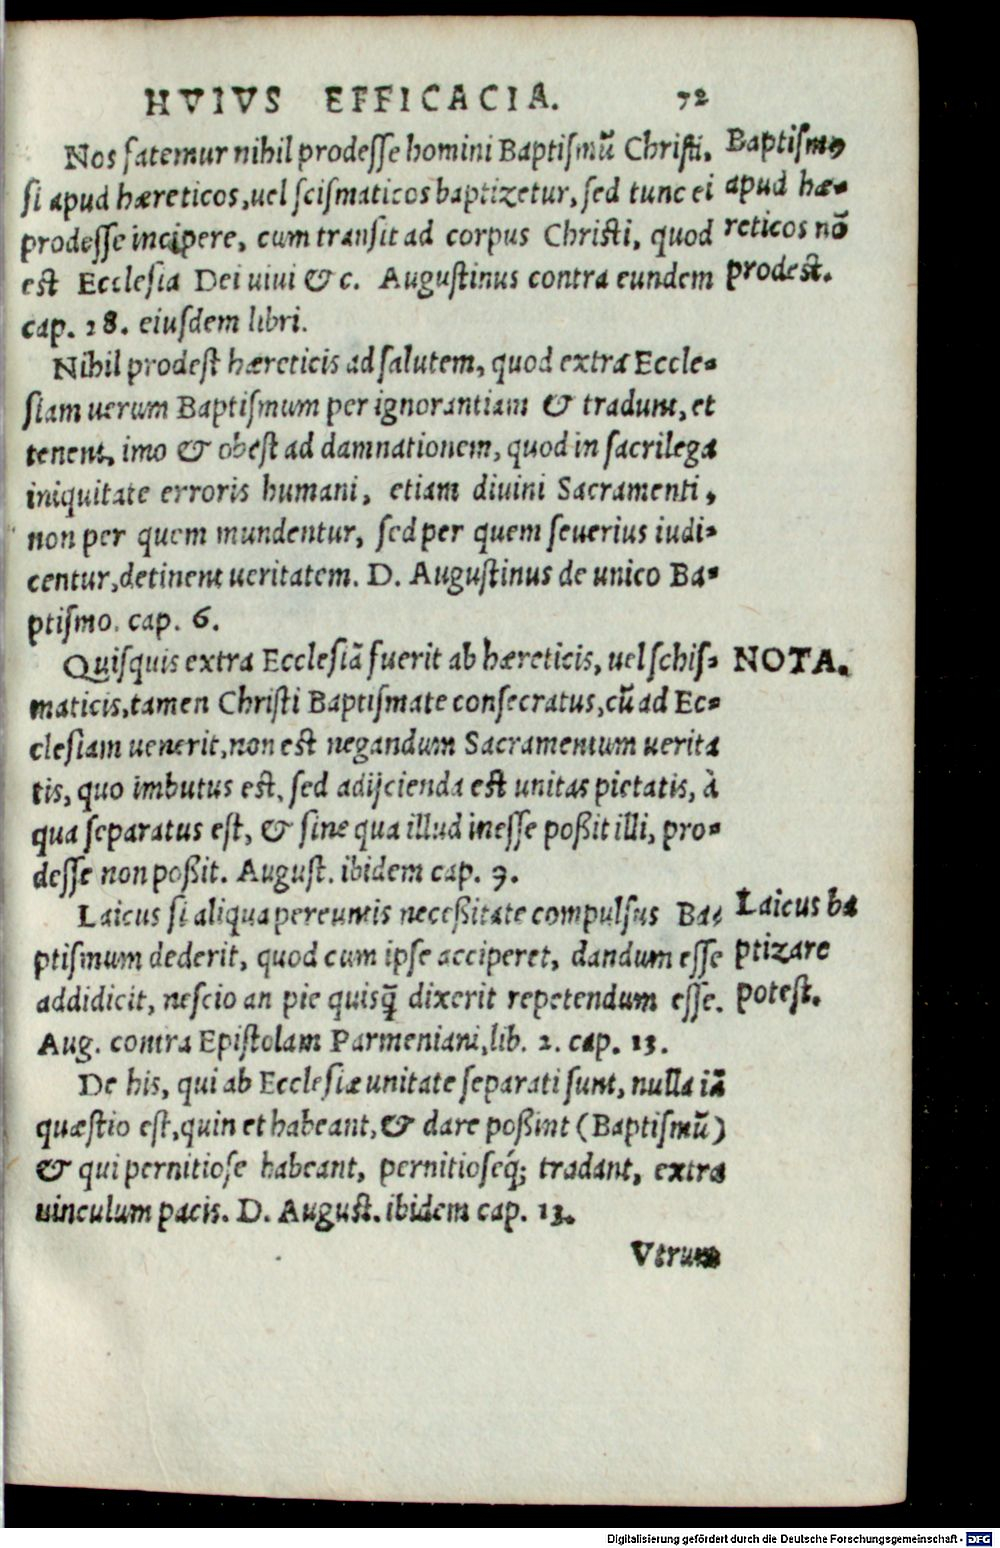 HVIVS EFFICACIA. 72
Nos fatemur nihil prodeſſe homini Baptiſmū Chriſti,
ſi apud hæreticos, uel ſciſmaticos baptizetur, ſed tunc ei
prodeſſe incipere, cum tranſit ad corpus Chriſti, quod
eſt Eccleſia Dei uiui & c. Auguſtinus contra eundem
cap. 28. eiuſdem libri.
Nihil prodeſt hæreticis ad ſalutem, quod extra Eccle-
ſiam uerum Baptiſmum per ignorantiam & tradunt, et
tenent, imo & obeſt ad damnationem, quod in ſacrilega
iniquitate erroris humani, etiam diuini Sacramenti,
non per quem mundentur, ſed per quem ſeuerius iudi-
centur, detinent ueritatem. D. Auguſtinus de unico Ba-
ptiſmo. cap. 6.
Quiſquis extra Eccleſiā fuerit ab hæreticis, uel ſchiſ-
maticis, tamen Chriſti Baptiſmate conſecratus, cū ad Ec-
cleſiam uenerit, non eſt negandum Sacramentum uerita
tis, quo imbutus eſt, ſed adijcienda eſt unitas pietatis, à
qua ſeparatus eſt, & ſine qua illud ineſſe poßit illi, pro-
deſſe non poßit. Auguſt. ibidem cap. 9.
Laicus ſi aliqua pereuntis neceßitate compulſus Ba-
ptiſmum dederit, quod cum ipſe acciperet, dandum eſſe
addidicit, neſcio an pie quisq̄ dixerit repetendum eſſe.
Aug. contra Epiſtolam Parmeniani, lib. 2. cap. 13.
De his, qui ab Eccleſiæ unitate ſeparati ſunt, nulla iā
quæſtio eſt, quin et habeant, & dare poßint (Baptiſmū)
& qui pernitioſe habeant, pernitioſeq́; tradant, extra
uinculum pacis. D. Auguſt. ibidem cap. 13.
Vtrum
Baptiſmꝰ
apud hæ-
reticos nō
prodeſt.
NOTA.
Laicus ba
ptizare
poteſt.
Digitalisierung gefördert durch die Deutsche Forschungsgemeinschaft - DFG